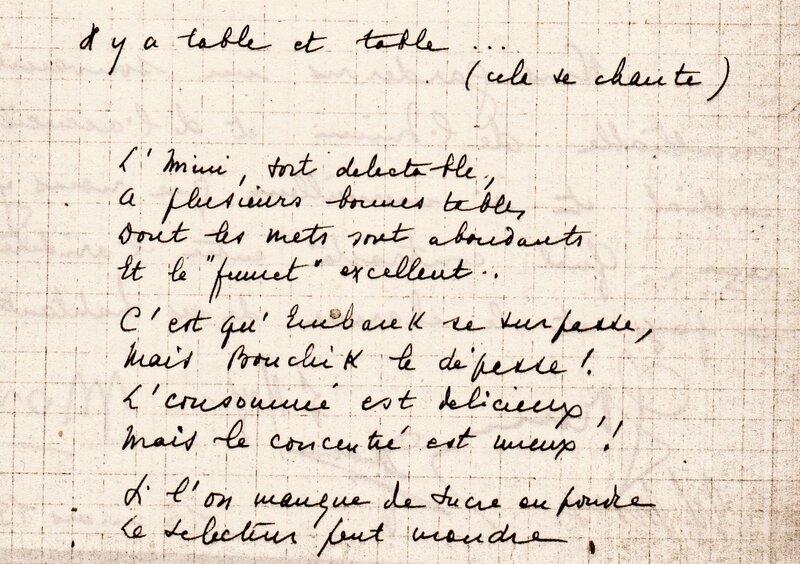 Il y a table et table ...
(cela se chante)
L'Mini, sort delectable,
a plusieurs bonnes tables
Dont les mets sont abondants
Et le "fumet" excellent..
C'est qu'Embarek se surpasse,
Mais Bouchik le dépasse!
L'consommé est delicieux,
Mais le concentré est mieux!
Si l'on manque de sucre en poudre
Le selecteur peut moudre.